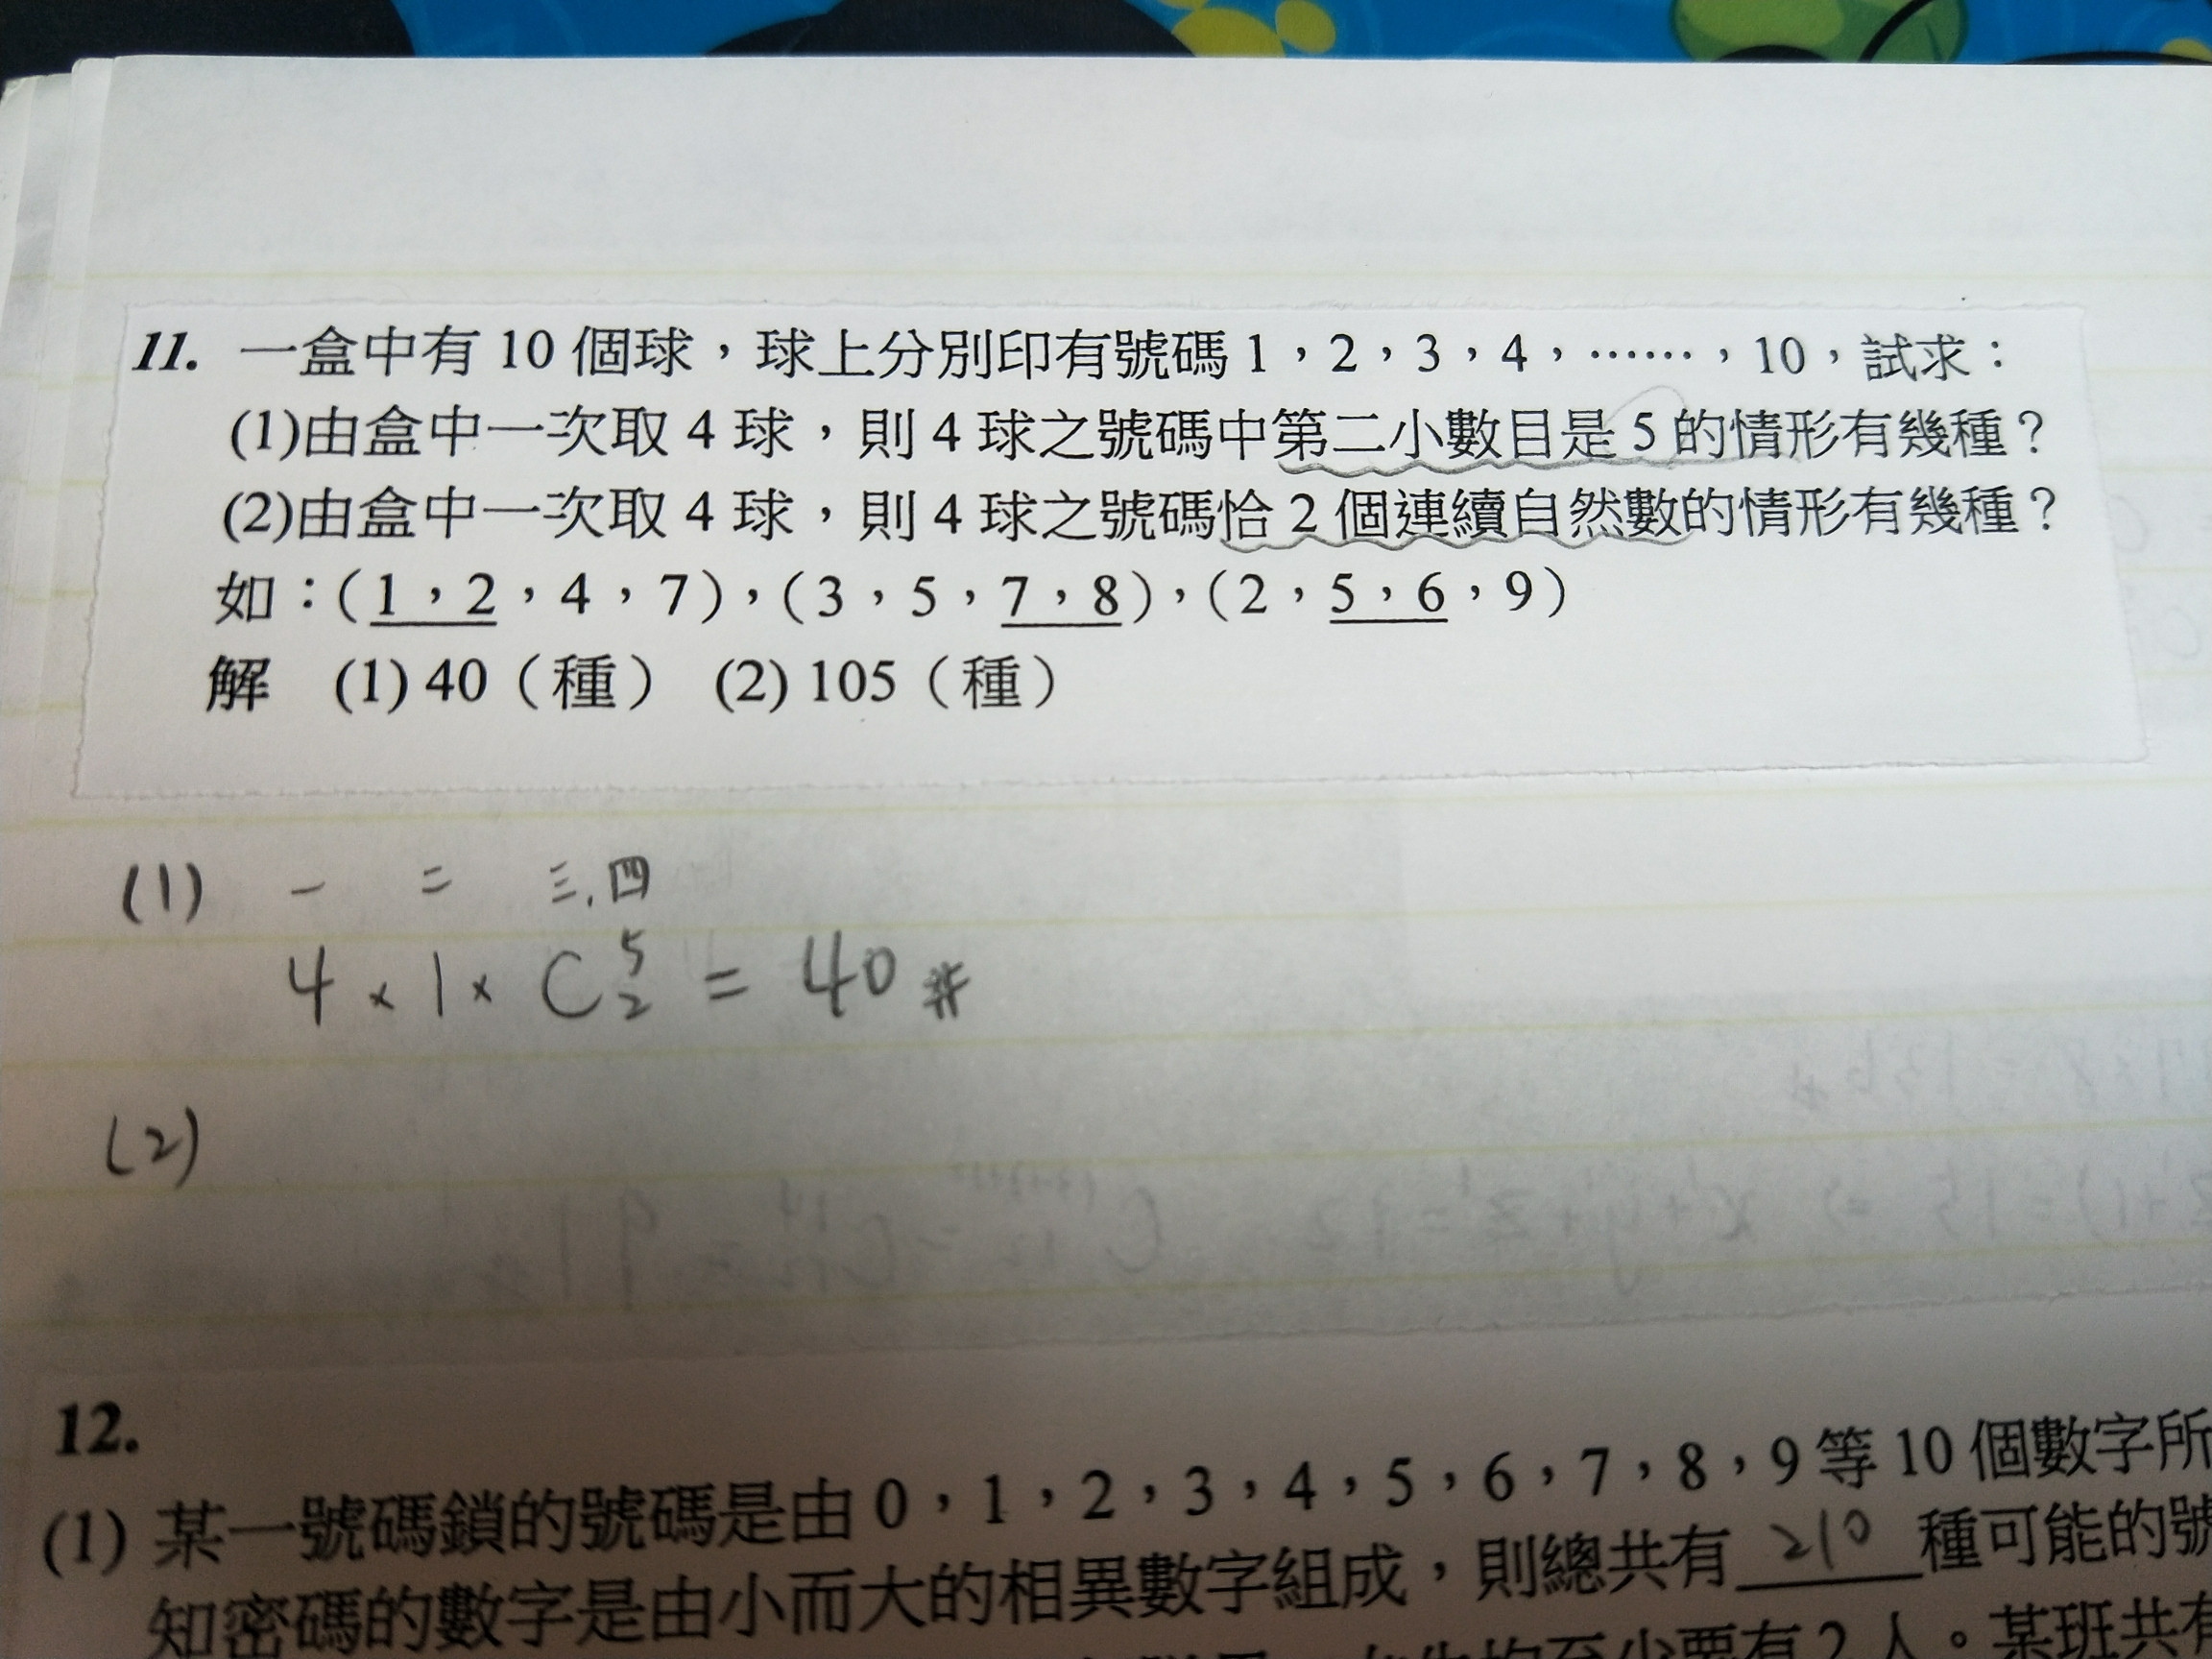 11. 一盒中有 10 個球，球上分別印有號碼 1，2，3，4，……，10，試求：
(1)由盒中一次取 4 球，則 4 球之號碼中第二小數目是 5 的情形有幾種？
(2)由盒中一次取 4 球，則 4 球之號碼恰 2 個連續自然數的情形有幾種？
如：(1，2，4，7)，(3，5，7，8)，(2，5，6，9)
解 (1) 40（種） (2) 105（種）
(1) 一 二 三.四
4 × 1 × C⁵₂ = 40 #
(2)
12.
(1) 某一號碼鎖的號碼是由 0，1，2，3，4，5，6，7，8，9 等 10 個數字所
知密碼的數字是由小而大的相異數字組成，則總共有 210 種可能的號
至少要有 2 人。某班共有